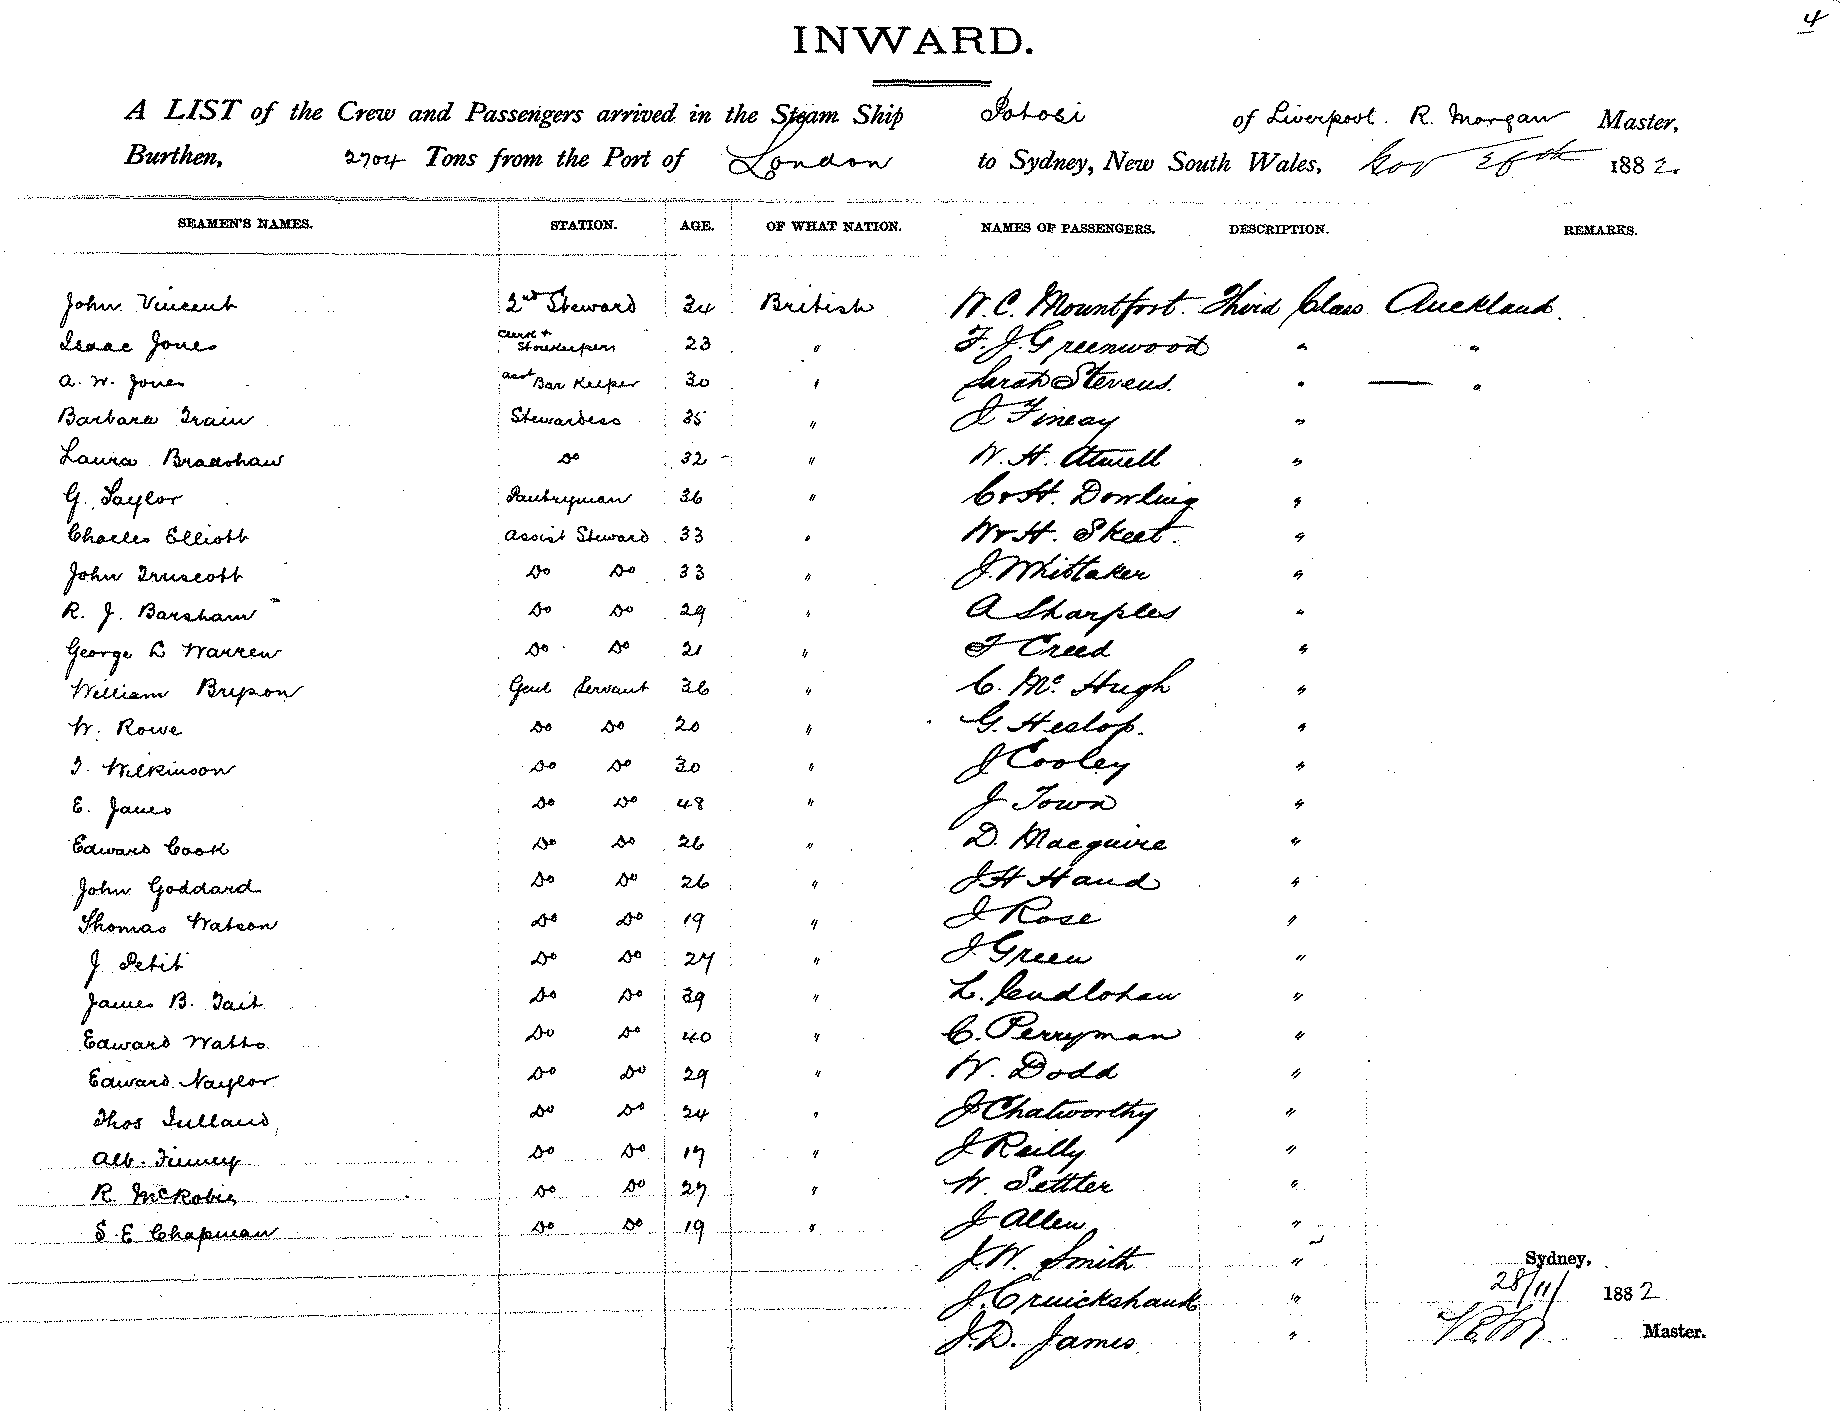 4
INWARD.
A LIST of the Crew and Passengers arrived in the Steam Ship Potosi of Liverpool. R. Morgan Master,
Burthen, 2704 Tons from the Port of London to Sydney, New South Wales, Nov 28th 1882.
SEAMEN'S NAMES. STATION. AGE. OF WHAT NATION. NAMES OF PASSENGERS. DESCRIPTION. REMARKS.
John Vincent 2nd Steward 34 British W. C. Mountfort. Third Class Auckland.
Isaac Jones Clerk + Storekeeper 23 " F. J. Greenwood " "
A. W. Jones asst Bar Keeper 30 " Sarah Stevens. " — "
Barbara Train Stewardess 35 " J Fincay "
Laura Bradshaw Do 32 " W. H. Atwell "
G. Taylor Pantryman 36 " C. H. Dowling "
Charles Elliott Assist Steward 33 " W. H. Skeet. "
John Truscott Do Do 33 " J. Whittaker "
R. J. Barsham Do Do 29 " A Sharples "
George L Warren Do Do 21 " F Creed "
William Genl Servant 36 " C. Mc Hugh "
W. Rowe Do Do 20 " G. Heslop. "
T. Wilkinson Do Do 30 " J Cooley "
E. Janes Do Do 48 " J Town "
Edward Cook Do Do 26 " D. Macguire "
John Goddard Do Do 26 " J H Hand "
Thomas Watson Do Do 19 " J Rose "
J. Petit Do Do 27 " J. Green "
James B. Tait Do Do 39 " L. "
Edward Watts Do Do 40 " C. Perryman "
Edward Naylor Do Do 29 " W. Dodd "
Thos Do Do 24 " J Chatworthy "
Alb. Finney Do Do 17 " J Reilly "
R. McRobie Do Do 27 " W. Settler "
S. E Chapman Do Do 19 " J Allen "
J. W. Smith "
J. Cruickshank "
J. D. James "
Sydney,
28/11/ 1882
Master.